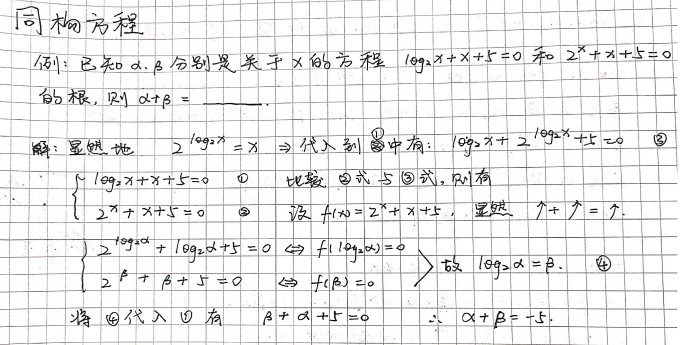 同构方程
例：已知 α.β 分别是关于 x 的方程 log₂x+x+5=0 和 2ˣ+x+5=0
的根，则 α+β = ______.
解：显然地 2^{log₂x}=x ⇒ 代入到①中有：log₂x+2^{log₂x}+5=0 ③
{ log₂x+x+5=0 ① 比较②式与③式，则有
2ˣ+x+5=0 ② 设 f(x)=2ˣ+x+5，显然 ↑+↑=↑.
{ 2^{log₂α}+log₂α+5=0 ⇔ f(log₂α)=0 } 故 log₂α=β. ④
2^β+β+5=0 ⇔ f(β)=0
将④代入①有 β+α+5=0 ∴ α+β=-5.